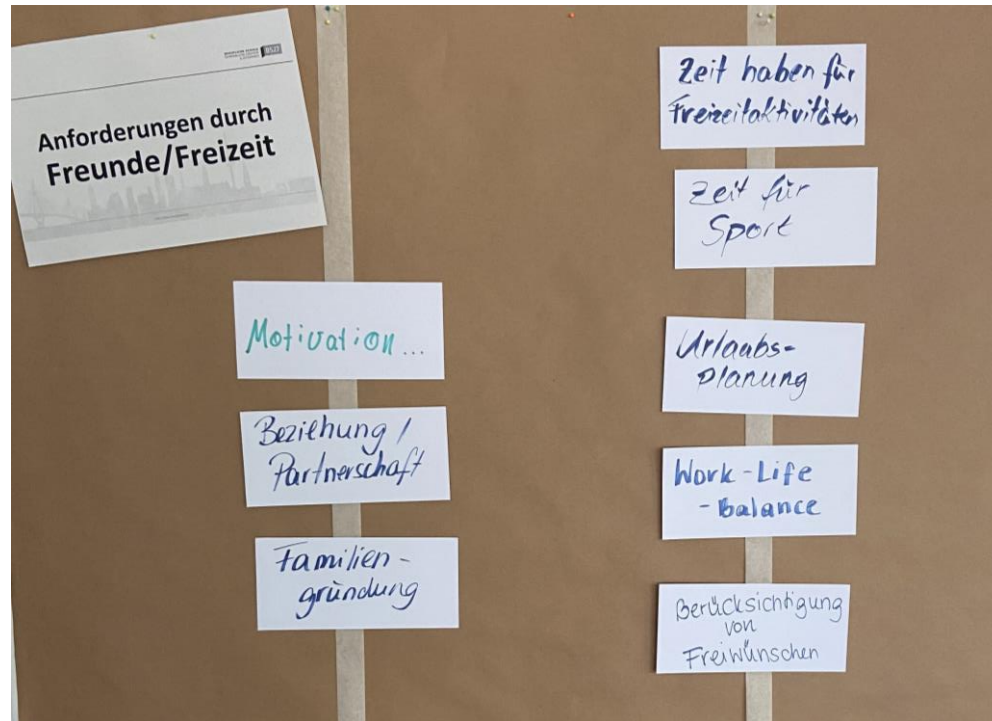 BS27
Anforderungen durch
Freunde/Freizeit
Motivation...
Beziehung /
Partnerschaft
Familien-
gründung
Zeit haben für
Freizeitaktivitäten
Zeit für
Sport
Urlaubs-
planung
Work-Life
-balance
Berücksichtigung
von
Freiwünschen